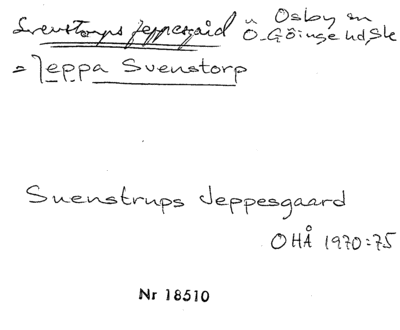 Svenstorps Jeppesgaid Ö Osby sn
Ö. Göinge hd, Sk
= Jeppa Svenstorp
Suenstrups Jeppesgaard
OHÅ 1970:75
Nr 18510